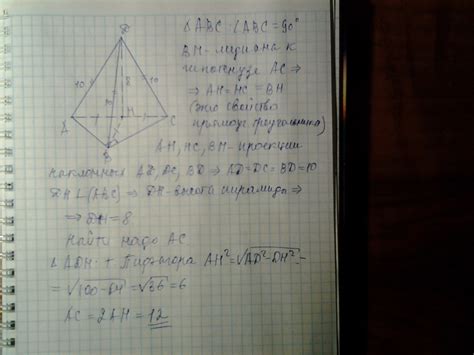 Δ ABC ∠ABC = 90°
BH - медиана к
гипотенузе AC ⇒
⇒ AH = HC = BH
(это свойство
прямоуг. треугольника)
AH, HC, BH - проекции
наклонных AD, DC, BD ⇒ AD = DC = BD = 10
DH ⊥ (ABC) ⇒ DH - высота пирамиды ⇒
⇒ DH = 8
Найти надо AC
∆ ADH. т Пифагора AH² = √AD² - DH² =
= √100 - 64 = √36 = 6
AC = 2AH = 12
D
10
10
8
A
H
C
B